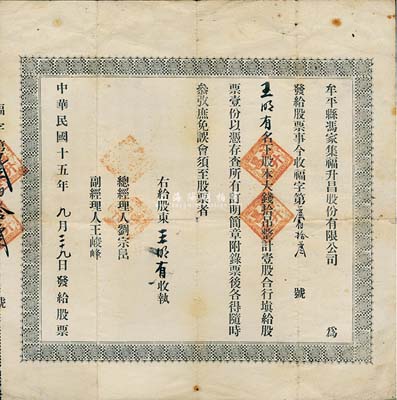 牟平縣馮家集福升昌股份有限公司 為
發給股票事今收福字第 號
王明有名下股本大錢拾吊整計壹股合行填給股
票壹份以憑存查所有訂明簡章附錄票後各得隨時
參攷庶免誤會須至股票者
右給股東 王明有 收執
總經理人劉宗邑
副經理人王峻峰
中華民國十五年 九月 九日發給股票
福字第
號